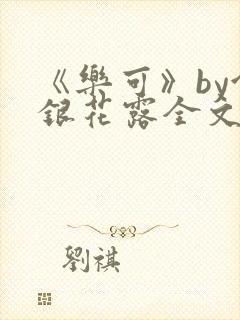 《樂可》by
銀花露全文
劉祺